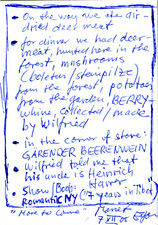 • On the way we ate air-
dried deer meat
• for dinner we had deer-
meat, hunted here in the
forest, mushrooms
(boletus/steinpilze)
from the forest, potatoes
from the garden, BERRY-
whine, collected/made
by Wilfried
• in the corner of stove:
GÄRENDER BEERENWEIN
• Wilfried told me that
his uncle is Heinrich
Harrer
• Show Book:
Romantic NY ("7 years in Tibet")
"More to Come"
7 VII 05